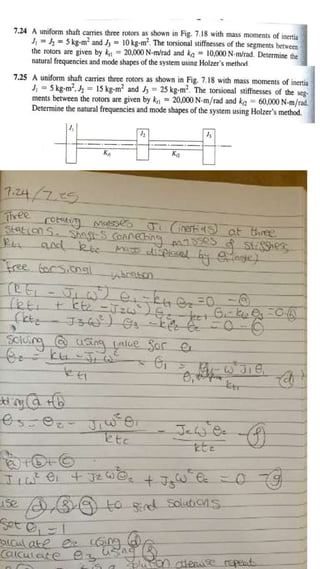 7.24 A uniform shaft carries three rotors as shown in Fig. 7.18 with mass moments of inertia
J₁ = J₂ = 5 kg-m² and J₃ = 10 kg-m². The torsional stiffnesses of the segments between
the rotors are given by kₜ₁ = 20,000 N-m/rad and kₜ₂ = 10,000 N-m/rad. Determine the
natural frequencies and mode shapes of the system using Holzer's method
7.25 A uniform shaft carries three rotors as shown in Fig. 7.18 with mass moments of inertia
J₁ = 5 kg-m², J₂ = 15 kg-m² and J₃ = 25 kg-m². The torsional stiffnesses of the seg-
ments between the rotors are given by kₜ₁ = 20,000 N-m/rad and kₜ₂ = 60,000 N-m/rad.
Determine the natural frequencies and mode shapes of the system using Holzer's method.
J₁ J₂ J₃
Kₜ₁ Kₜ₂
7.24/7.25
Three rotating masses Ji (inertias) at three
stations. Shafts connecting masses of stiffness
kt₁ and kt₂ displaced by θi (angle)
Free torsional vibration
(kt₁ - J₁ω²) θ₁ - kt₁ θ₂ = 0 - ⓐ
(kt₁ + kt₂ - J₂ω²) θ₂ - kt₁ θ₁ - kt₂ θ₃ = 0 ⓑ
(kt₂ - J₃ω²) θ₃ - kt₂ θ₂ = 0 - ⓒ
Solving ⓐ using value for θ₁
θ₂ = kt₁ - J₁ω² / kt₁ θ₁ = θ₁ - ω² J₁ θ₁ / kt₁ ⓓ
ⓐ + ⓑ
θ₃ = θ₂ - J₁ω²θ₁ / kt₂ - J₂ω²θ₂ / kt₂ - ⓕ
ⓐ + ⓑ + ⓒ
J₁ω²θ₁ + J₂ω²θ₂ + J₃ω²θ₂ = 0 - ⓖ
use ⓓ, ⓕ, ⓖ to find solutions
Set θ₁ = 1
Calculate θ₂ using ⓓ
Calculate θ₃ using ⓕ
solution otherwise repeat